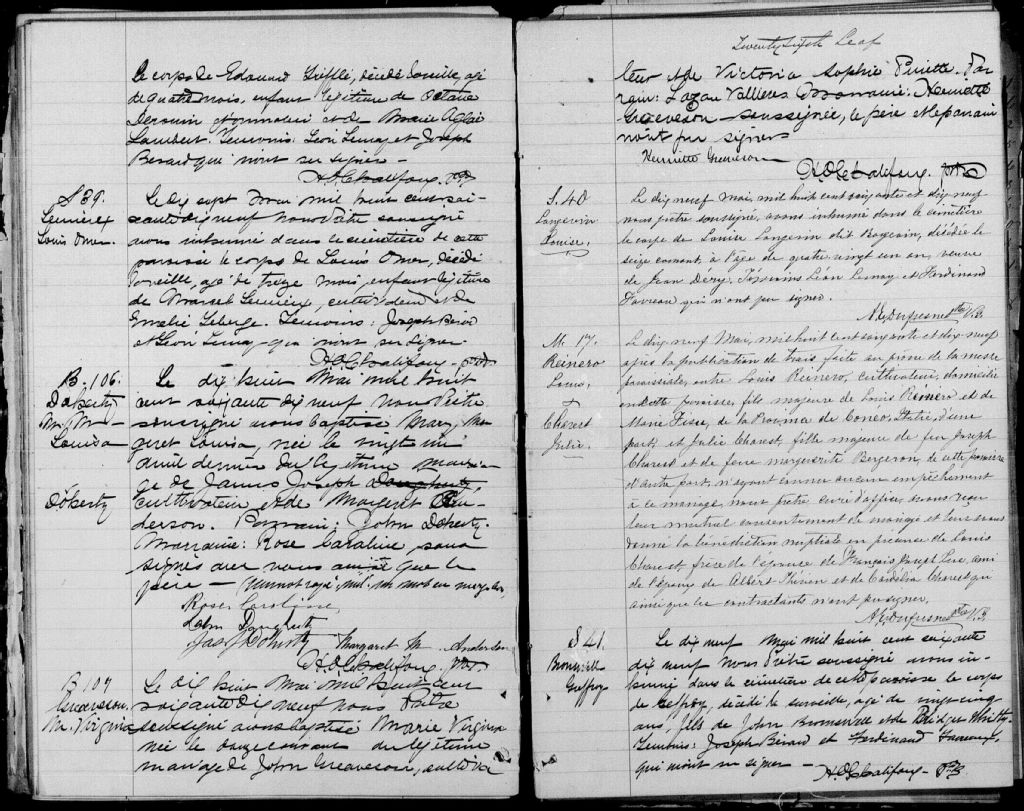 Le corps de Edouard décédé la veille, agé
de quatre mois, enfant légitime de Octave
et de Marie Aglaé
Lambert. Temoins: Léon Lemay et Joseph
Berard qui n'ont su signer —
Ptre
S 39.
Lemieux
Louis Omer.
Le dix sept Mai mil huit cent soi-
xante dix neuf nous Prêtre soussigné
avons inhumé dans le cimetière de cette
paroisse le corps de Louis Omer, décédé
la veille, agé de treize mois, enfant légitime
de Marcel Lemieux, cultivateur et de
Emélie Leberge. Temoins: Joseph Berard
et Léon Lemay qui n'ont su signer.
Ptre
B. 106.
Doherty
M. M —
Louisa
Doherty
Le dix huit Mai mil huit
cent soixante dix neuf nous Prêtre
soussigné avons baptisé Mary, Mar-
garet Louisa, née le vingt un
Avril dernier du légitime maria-
ge de James Joseph Daugherty,
cultivateur et de Margaret An-
derson. Parrain: John Doherty.
Marraine: Rose Caroline sous-
signés avec nous ainsi que le
père — un mot rayé, nul. un mot en marge bon,
Rose Caroline
John Daugherty
Jas J Doherty Margaret M. Anderson
Ptre
B 107
Greaveson.
M. Virginia
Le dix huit Mai mil huit cent
soixante dix neuf nous Prêtre
soussigné avons baptisé Marie Virginia
née le douze courant du légitime
mariage de John Greaveson, cultiva
Twenty sixth Leaf
teur et de Victoria Sophie Piette. Par-
rain: Lazare Vallières Marraine: Henriette
Greaveson soussignée, le père et le parrain
n'ont pu signer
Henriette Greaveson
Ptre
S. 40
Langevin
Louise,
Le dix neuf Mai, mil huit cent soixante et dix neuf
nous prêtre soussigné, avons inhumé dans le cimetière
le corps de Louise Langevin dit Bergevin, décédée le
seize courant, à l'age de quatre vingt un an, veuve
de Jean Déry. Témoins Léon Lemay et Ferdinand
Favreau qui n'ont pu signer.
N. E. Dufresne Ptre V.G.
M. 17.
Reinero
Louis,
&
Charest
Julie.
Le dix neuf Mai, mil huit cent soixante et dix neuf
après la publication de trois, faite au prone de la messe
paroissiale, entre Louis Reinero, cultivateur, domicilié
en cette paroisse, fils majeur de Louis Reinero et de
Marie Fesse, de la Province de Coneo, Italie, d'une
part, et Julie Charest, fille majeure de feu Joseph
Charest et de feue Marguerite Bergeron, de cette paroisse
d'autre part, n'ayant connu aucun empêchement
à ce mariage, nous prêtre curé d'office, avons reçu
leur mutuel consentement de mariage et leur avons
donné la bénédiction nuptiale en présence de Louis
Charest frère de l'épouse de François Joseph ami
de l'époux de Albert Thérien et de Cordélia Charest qui
ainsi que les contractants n'ont pu signer,
N. E. Dufresne Ptre V.G.
S 41.
Geffroy
Le dix neuf Mai mil huit cent soixante
dix neuf Nous Prêtre soussigné avons in-
humé dans le cimetière de cette paroisse le corps
de Geffroy, décédé la surveille, agé de vingt cinq
ans, fils de John et de Bridget
Temoins: Joseph Bérard et Ferdinand Favreau,
qui n'ont su signer — Ptre